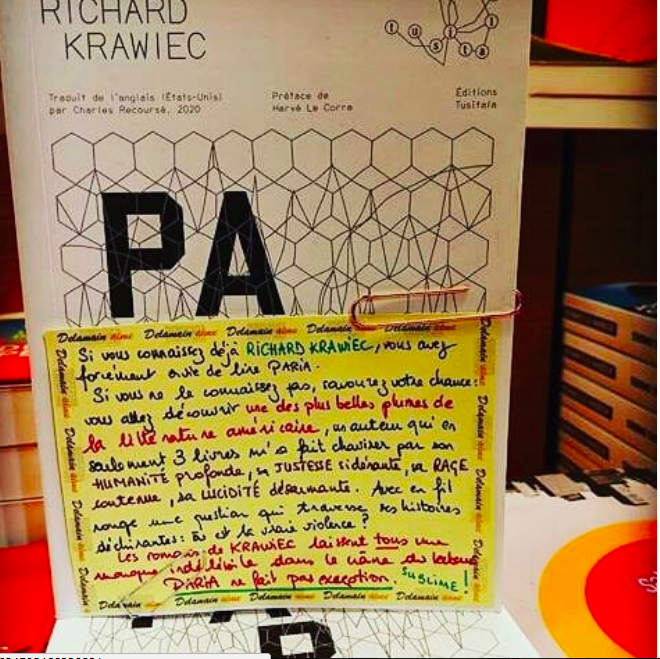 RICHARD
KRAWIEC
tusitala
Traduit de l'anglais (États-Unis)
par Charles Recoursé, 2020
Préface de
Hervé Le Corre
Éditions
Tusitala
PA
Delamain aime Delamain aime Delamain aime Delamain aime Delamain aime
Si vous connaissez déjà RICHARD KRAWIEC, vous avez
forcément envie de lire PARIA.
Si vous ne le connaissez pas, savourez votre chance :
vous allez découvrir une des plus belles plumes de
la littérature américaine, un auteur qui en
seulement 3 livres m'a fait chavirer par son
HUMANITÉ profonde, sa JUSTESSE sidérante, sa RAGE
contenue, sa LUCIDITÉ désarmante. Avec en fil
rouge une question qui traverse ses histoires
déchirantes : où est la vraie violence ?
Les romans de KRAWIEC laissent tous une
marque indélébile dans le crâne du lecteur
PARIA ne fait pas exception. SUBLIME !
Delamain aime Delamain aime Delamain aime Delamain aime Delamain aime